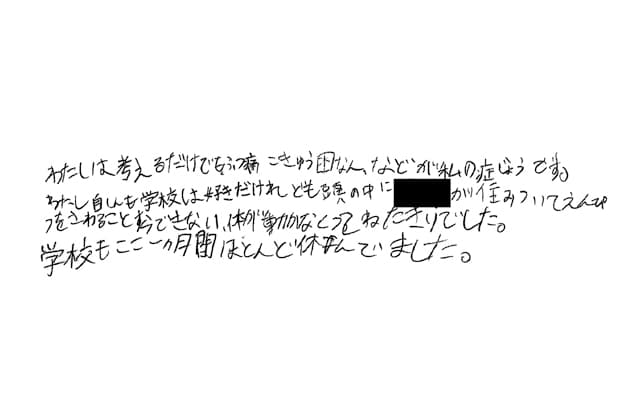 わたしは考えるだけでもふつ痛 こきゅう困なん、などが私の症じょうです。
わたし自しんも学校は好きだけれども頭の中に が住みついてえんぴ
つをさわることもできない、体が動かなくってねたきりでした。
学校もここ一ヵ月間ほとんど休んでました。